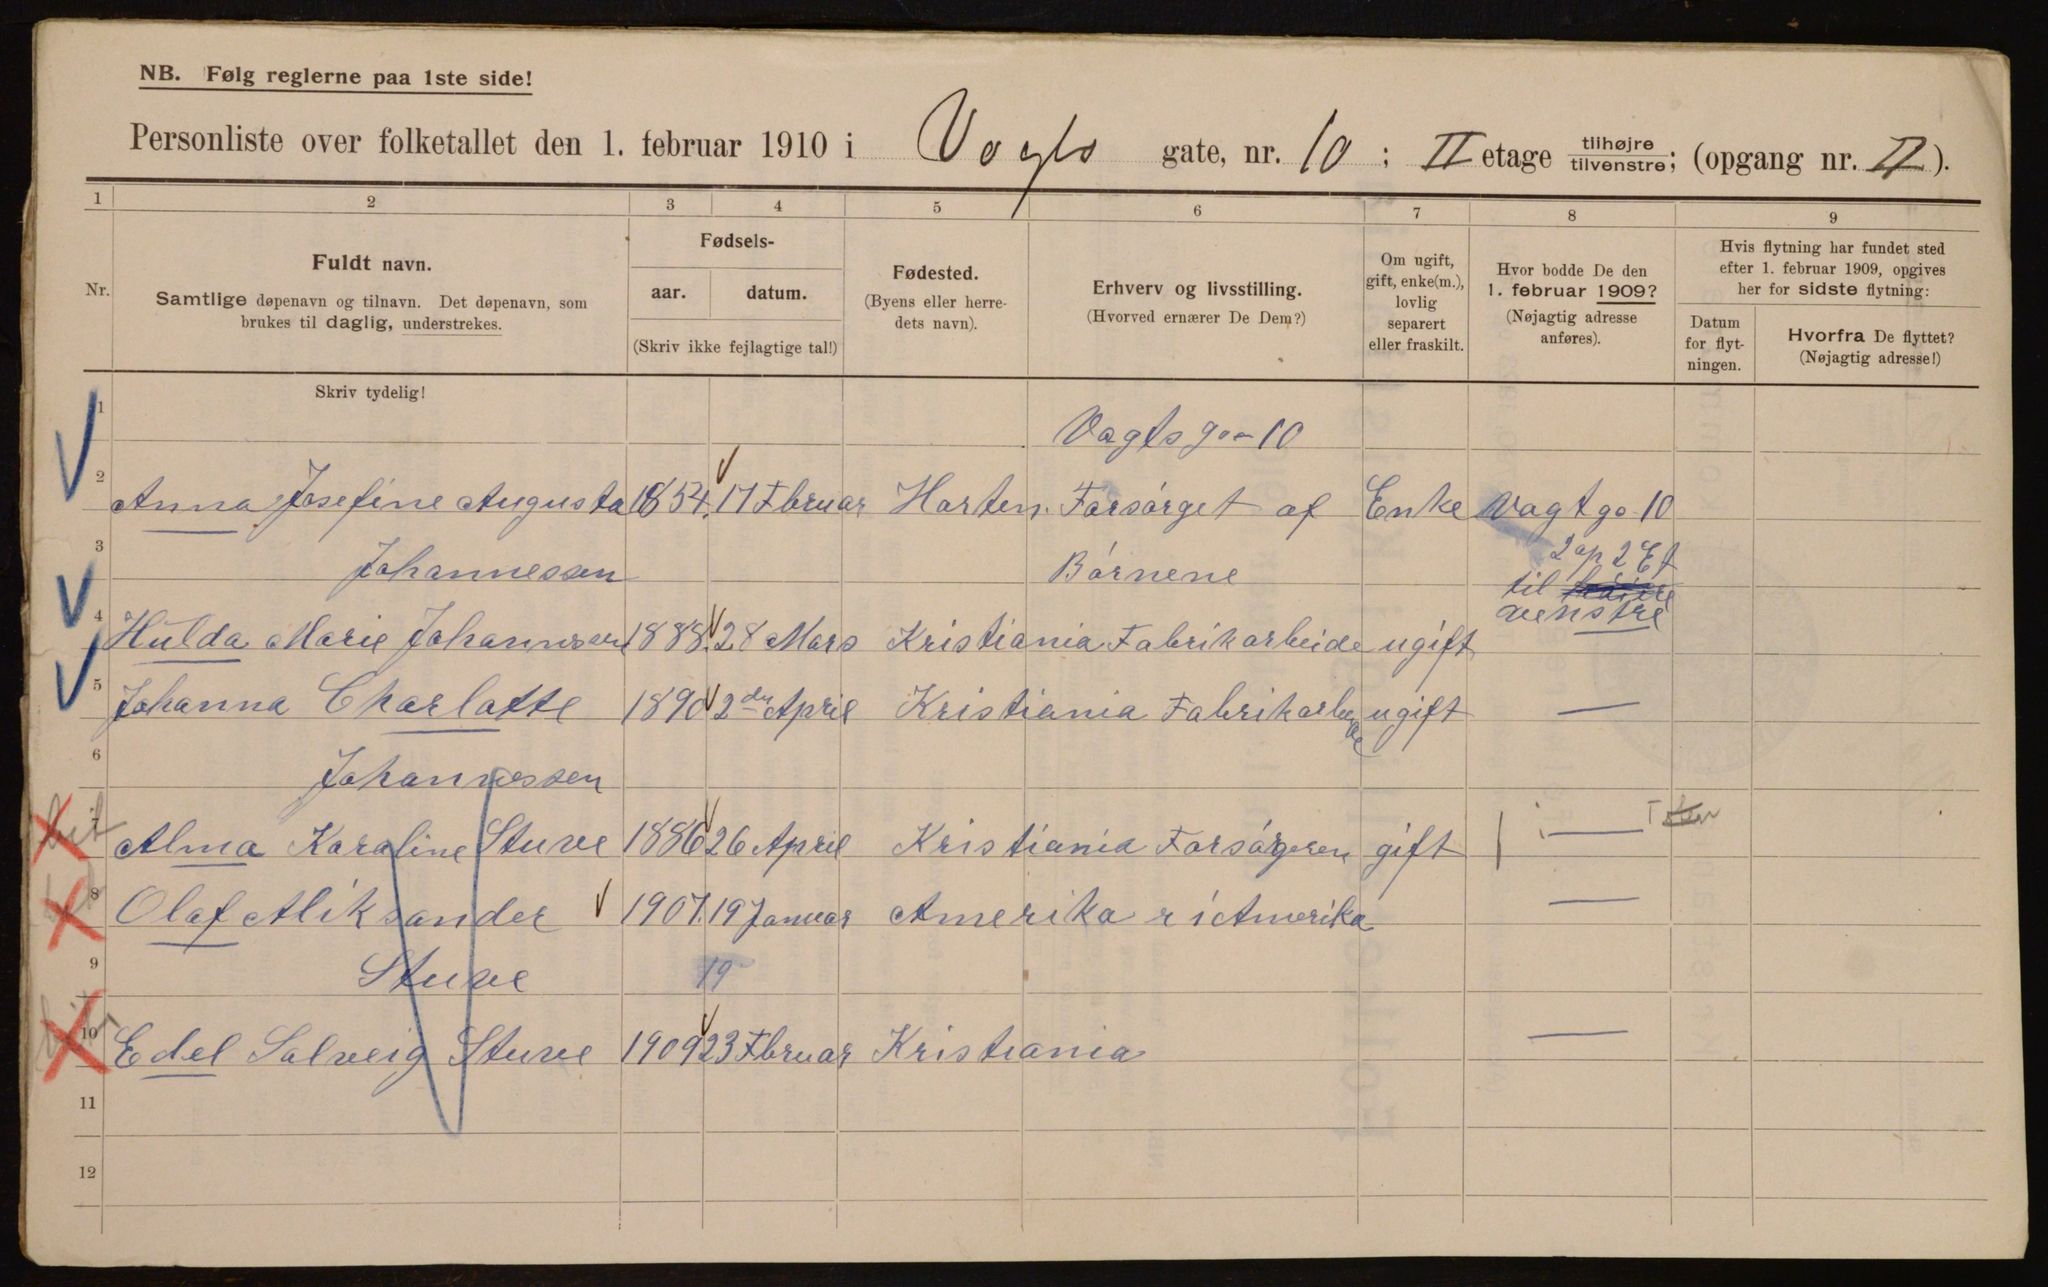 NB. Følg reglerne paa 1ste side!
Personliste over folketallet den 1. februar 1910 i Vogts gate, nr. 10 ; II etage tilhøjre tilvenstre; (opgang nr. II ).
1 2 3 4 5 6 7 8 9
Nr.
Fuldt navn.
Samtlige døpenavn og tilnavn. Det døpenavn, som
brukes til daglig, understrekes.
Fødsels-
aar. datum.
(Skriv ikke fejlagtige tal!)
Fødested.
(Byens eller herre-
dets navn).
Erhverv og livsstilling.
(Hvorved ernærer De Dem?)
Om ugift,
gift, enke(m.),
lovlig
separert
eller fraskilt.
Hvor bodde De den
1. februar 1909?
(Nøjagtig adresse
anføres).
Hvis flytning har fundet sted
efter 1. februar 1909, opgives
her for sidste flytning:
Datum
for flyt-
ningen.
Hvorfra De flyttet?
(Nøjagtig adresse!)
Skriv tydelig!
1 Vagts ga 10
2 Anna Josefine Augusta 1854. 17 Fbruar Horten. Forsørget af Enke Vagtga 10
2 op 2 Et
3 Johannessen Børnene til høiere
venstre
4 Hulda Marie Johannesen 1888. 28 Mars Kristiania Fabrikarbeide ugift
5 Johanna Charlotte 1890 2den April Kristiania Fabrikarbeide ugift —
6 Johannessen
7 Alma Karoline Stuve 1886 26 April Kristiania Forsørgeren gift —
8 Olaf Aliksander 1907. 19 Januar Amerika r i Amerika —
9 Stuve 19
10 Edel Solveig Stuve 1909 23 Fbruar Kristiania —
11
12